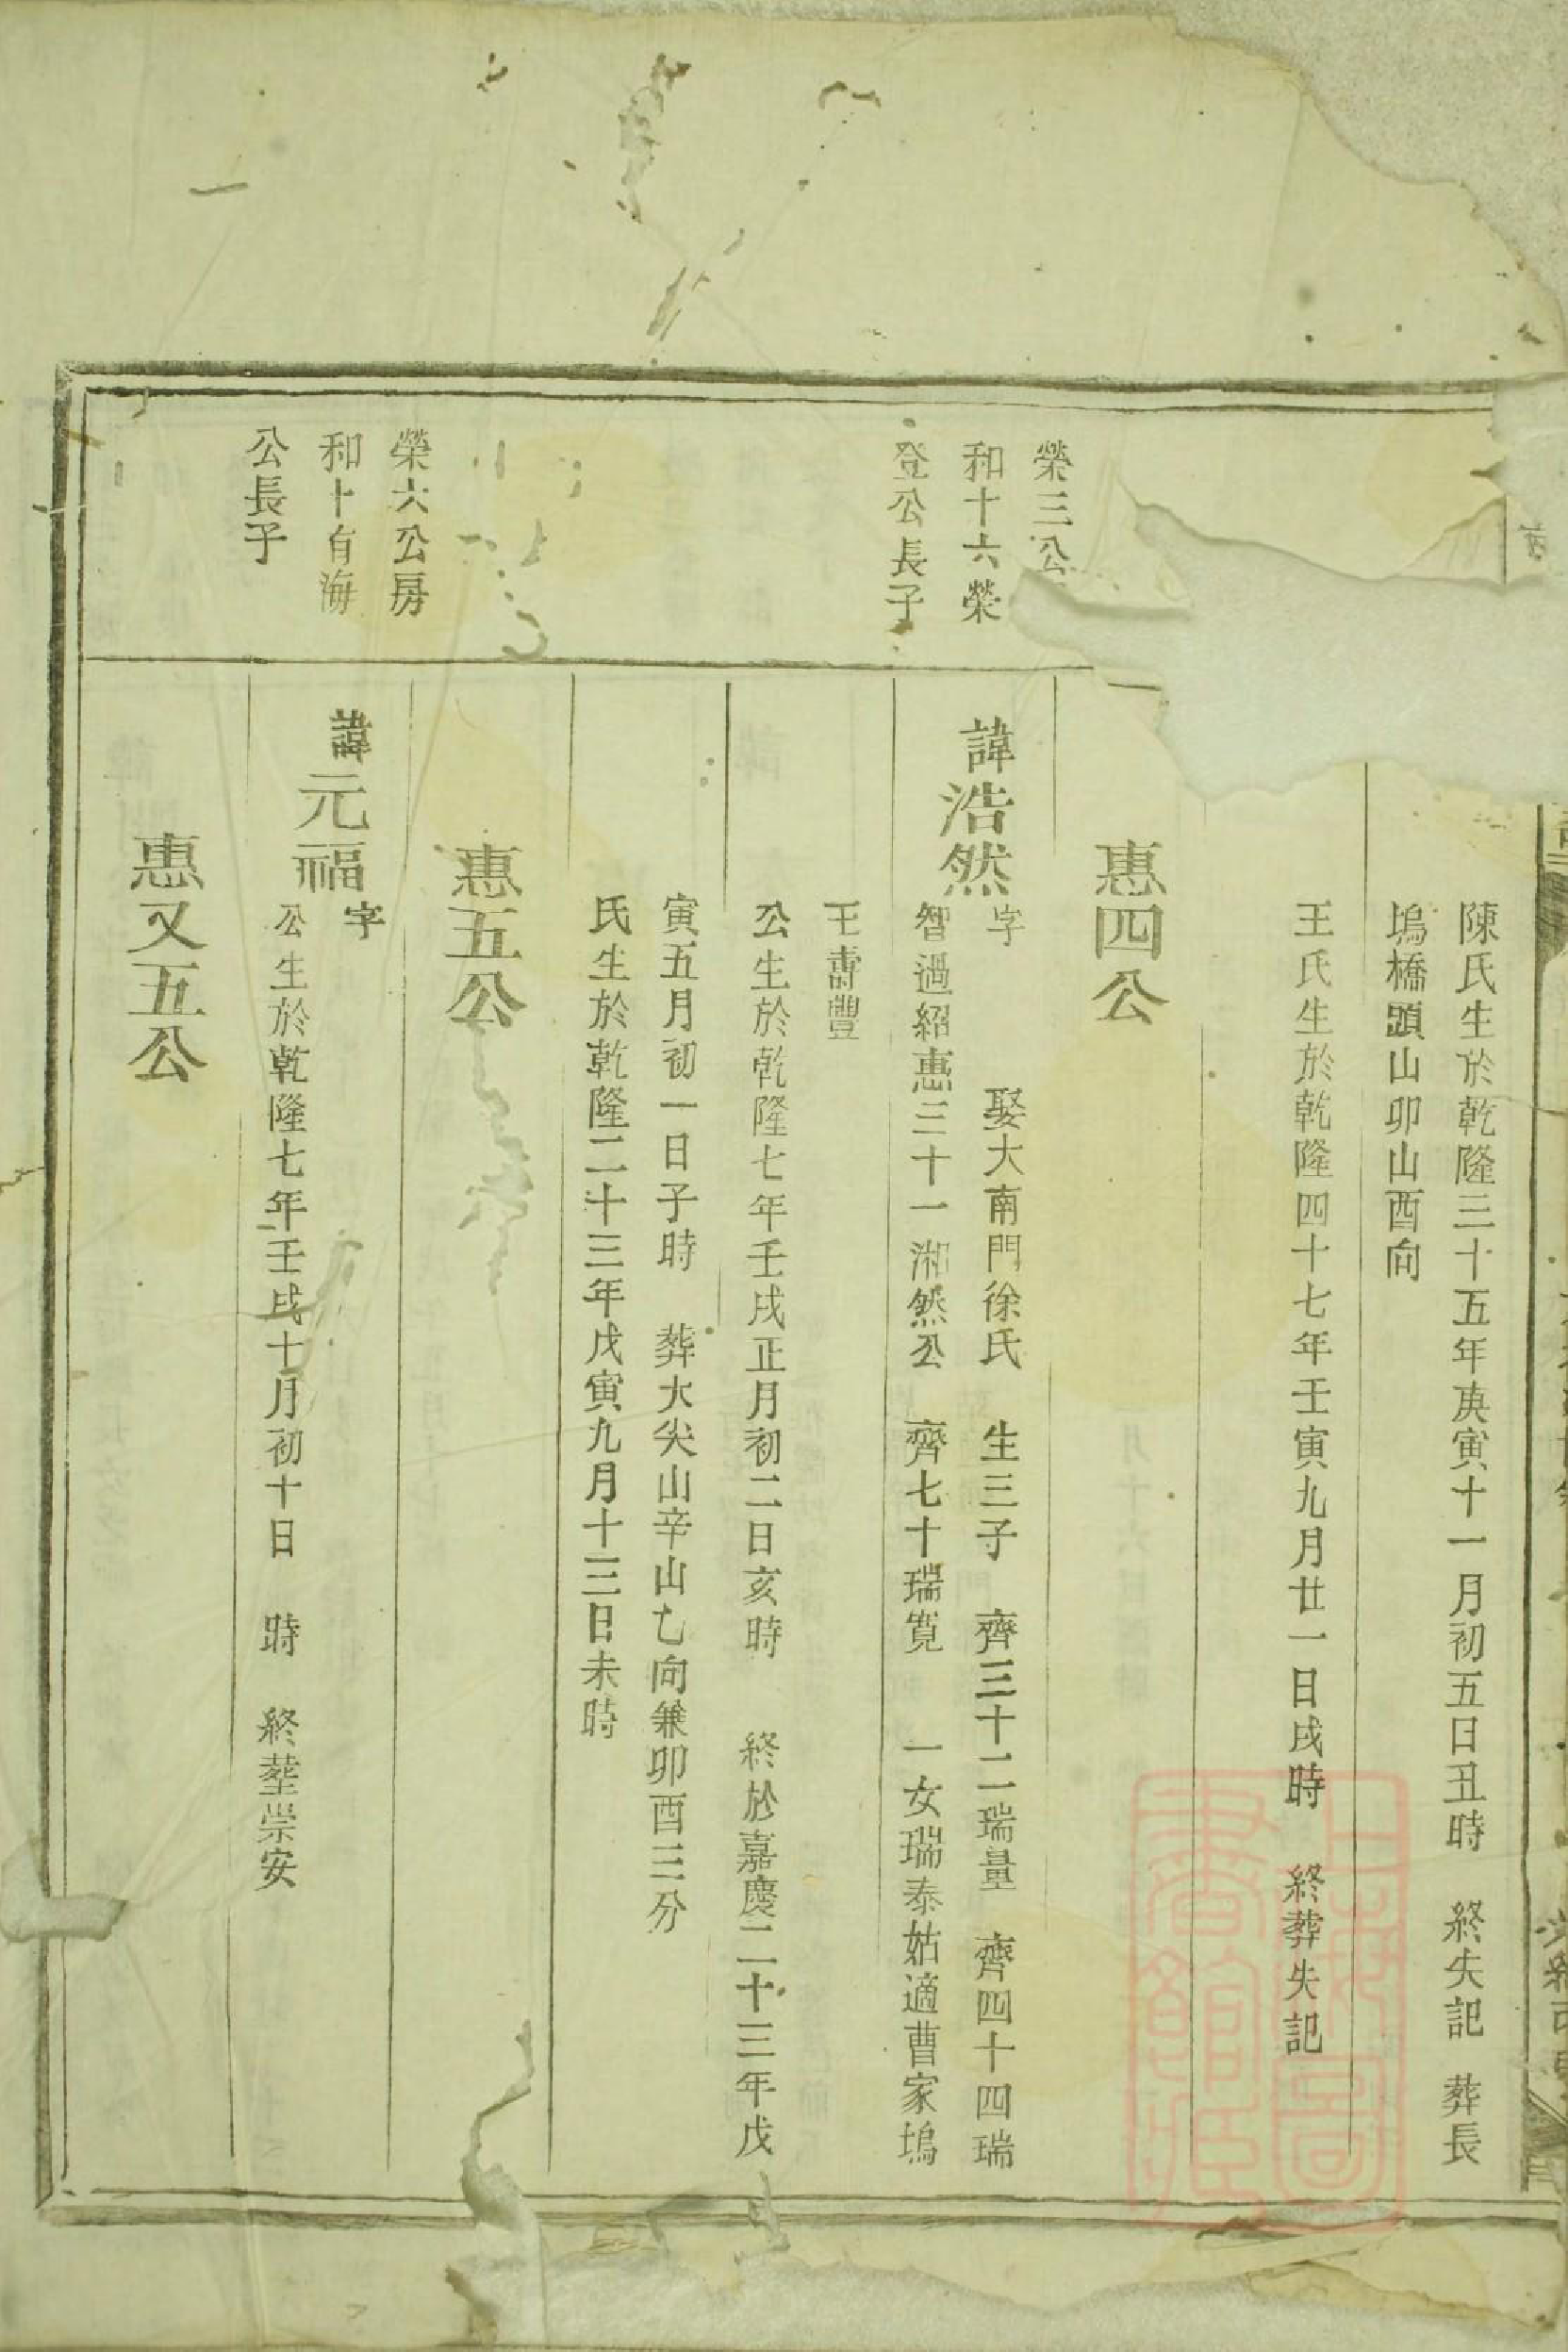 陳氏生於乾隆三十五年庚寅十一月初五日丑時　終失記　葬長
塢橋頭山卯山酉向
王氏生於乾隆四十七年壬寅九月廿一日戌時　終葬失記
惠四公
榮三公
和十六榮
登公長子
諱浩然
字　娶大南門徐氏　生三子　齊三十二瑞量　齊四十四瑞
智過紹惠三十一湘然公　齊七十瑞寬　一女瑞泰姑適曹家塢
王壽豐
公生於乾隆七年壬戌正月初二日亥時　終於嘉慶二十三年戊
寅五月初一日子時　葬大尖山辛山乙向兼卯酉三分
氏生於乾隆二十三年戊寅九月十三日未時
惠五公
榮六公房
和十有海
公長子
諱元福
字
公生於乾隆七年壬戌十月初十日　時　終塟崇安
惠又五公